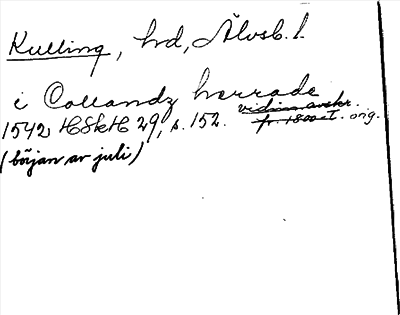 Kulling, hd, Älvsb. l.
i Collandz herrade
1542 HSkH 29, s. 152. vidim. avskr.
fr. 1800-t. orig.
(början av juli)